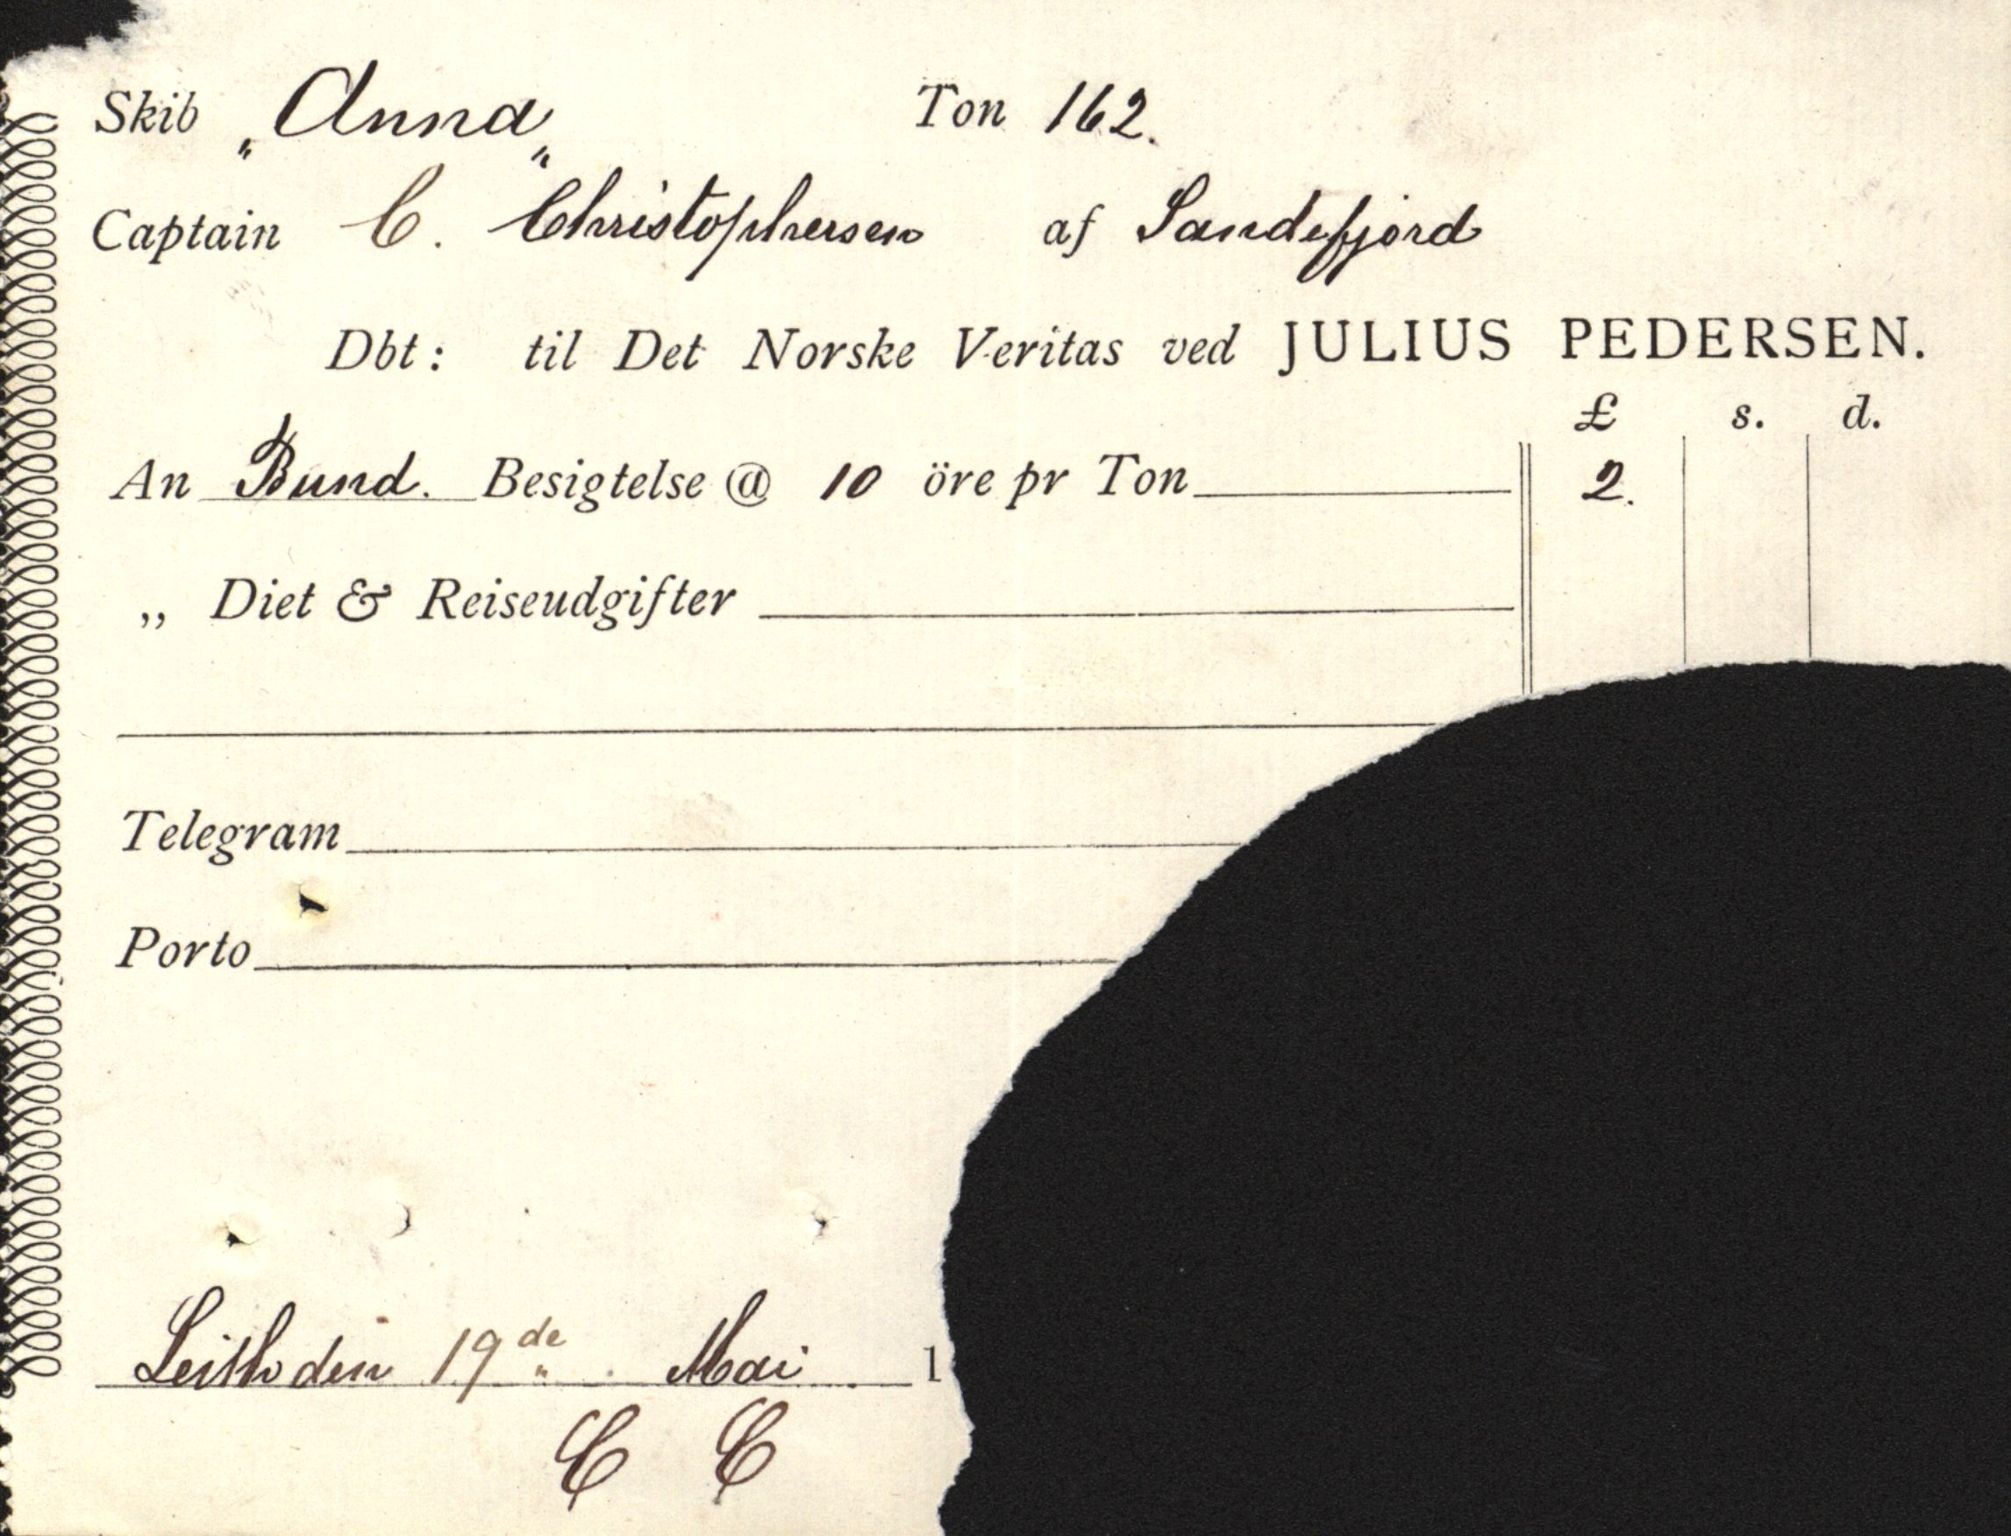 Skib „Anna„ Ton 162.
Captain C. Christophersen af Sandefjord
Dbt: til Det Norske Veritas ved JULIUS PEDERSEN.
£ s. d.
An Bund. Besigtelse @ 10 öre pr Ton 2.
„ Diet & Reiseudgifter
Telegram
Porto
Leith den 19de Mai 1
C C